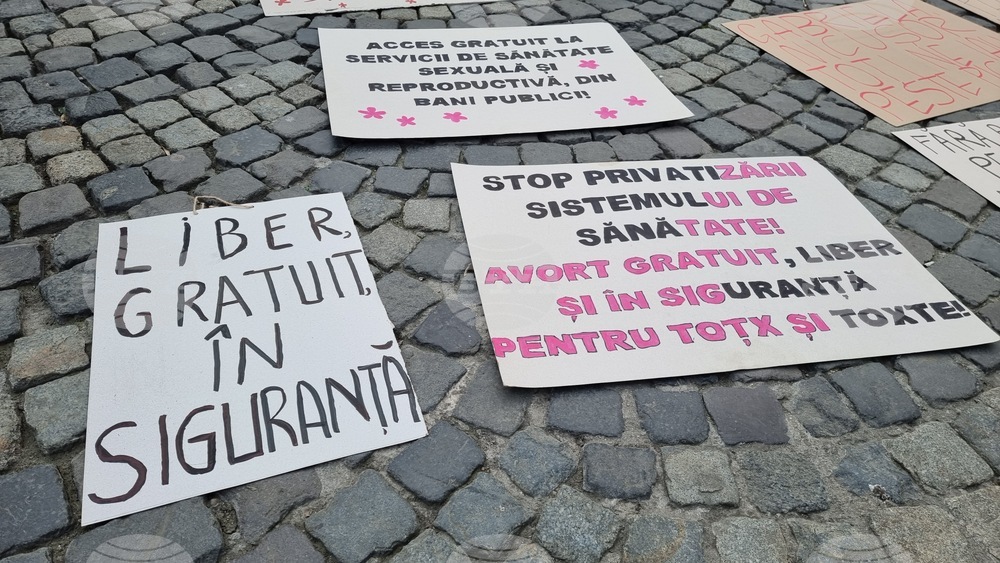 ACCES GRATUIT LA
SERVICII DE SĂNĂTATE
SEXUALĂ ȘI
REPRODUCTIVĂ, DIN
BANI PUBLICI!
STOP PRIVATIZĂRII
SISTEMULUI DE
SĂNĂTATE!
AVORT GRATUIT, LIBER
ȘI ÎN SIGURANȚĂ
PENTRU TOȚX ȘI TOXTE!
LIBER,
GRATUIT,
ÎN
SIGURANȚĂ
FĂRĂ
ESTE